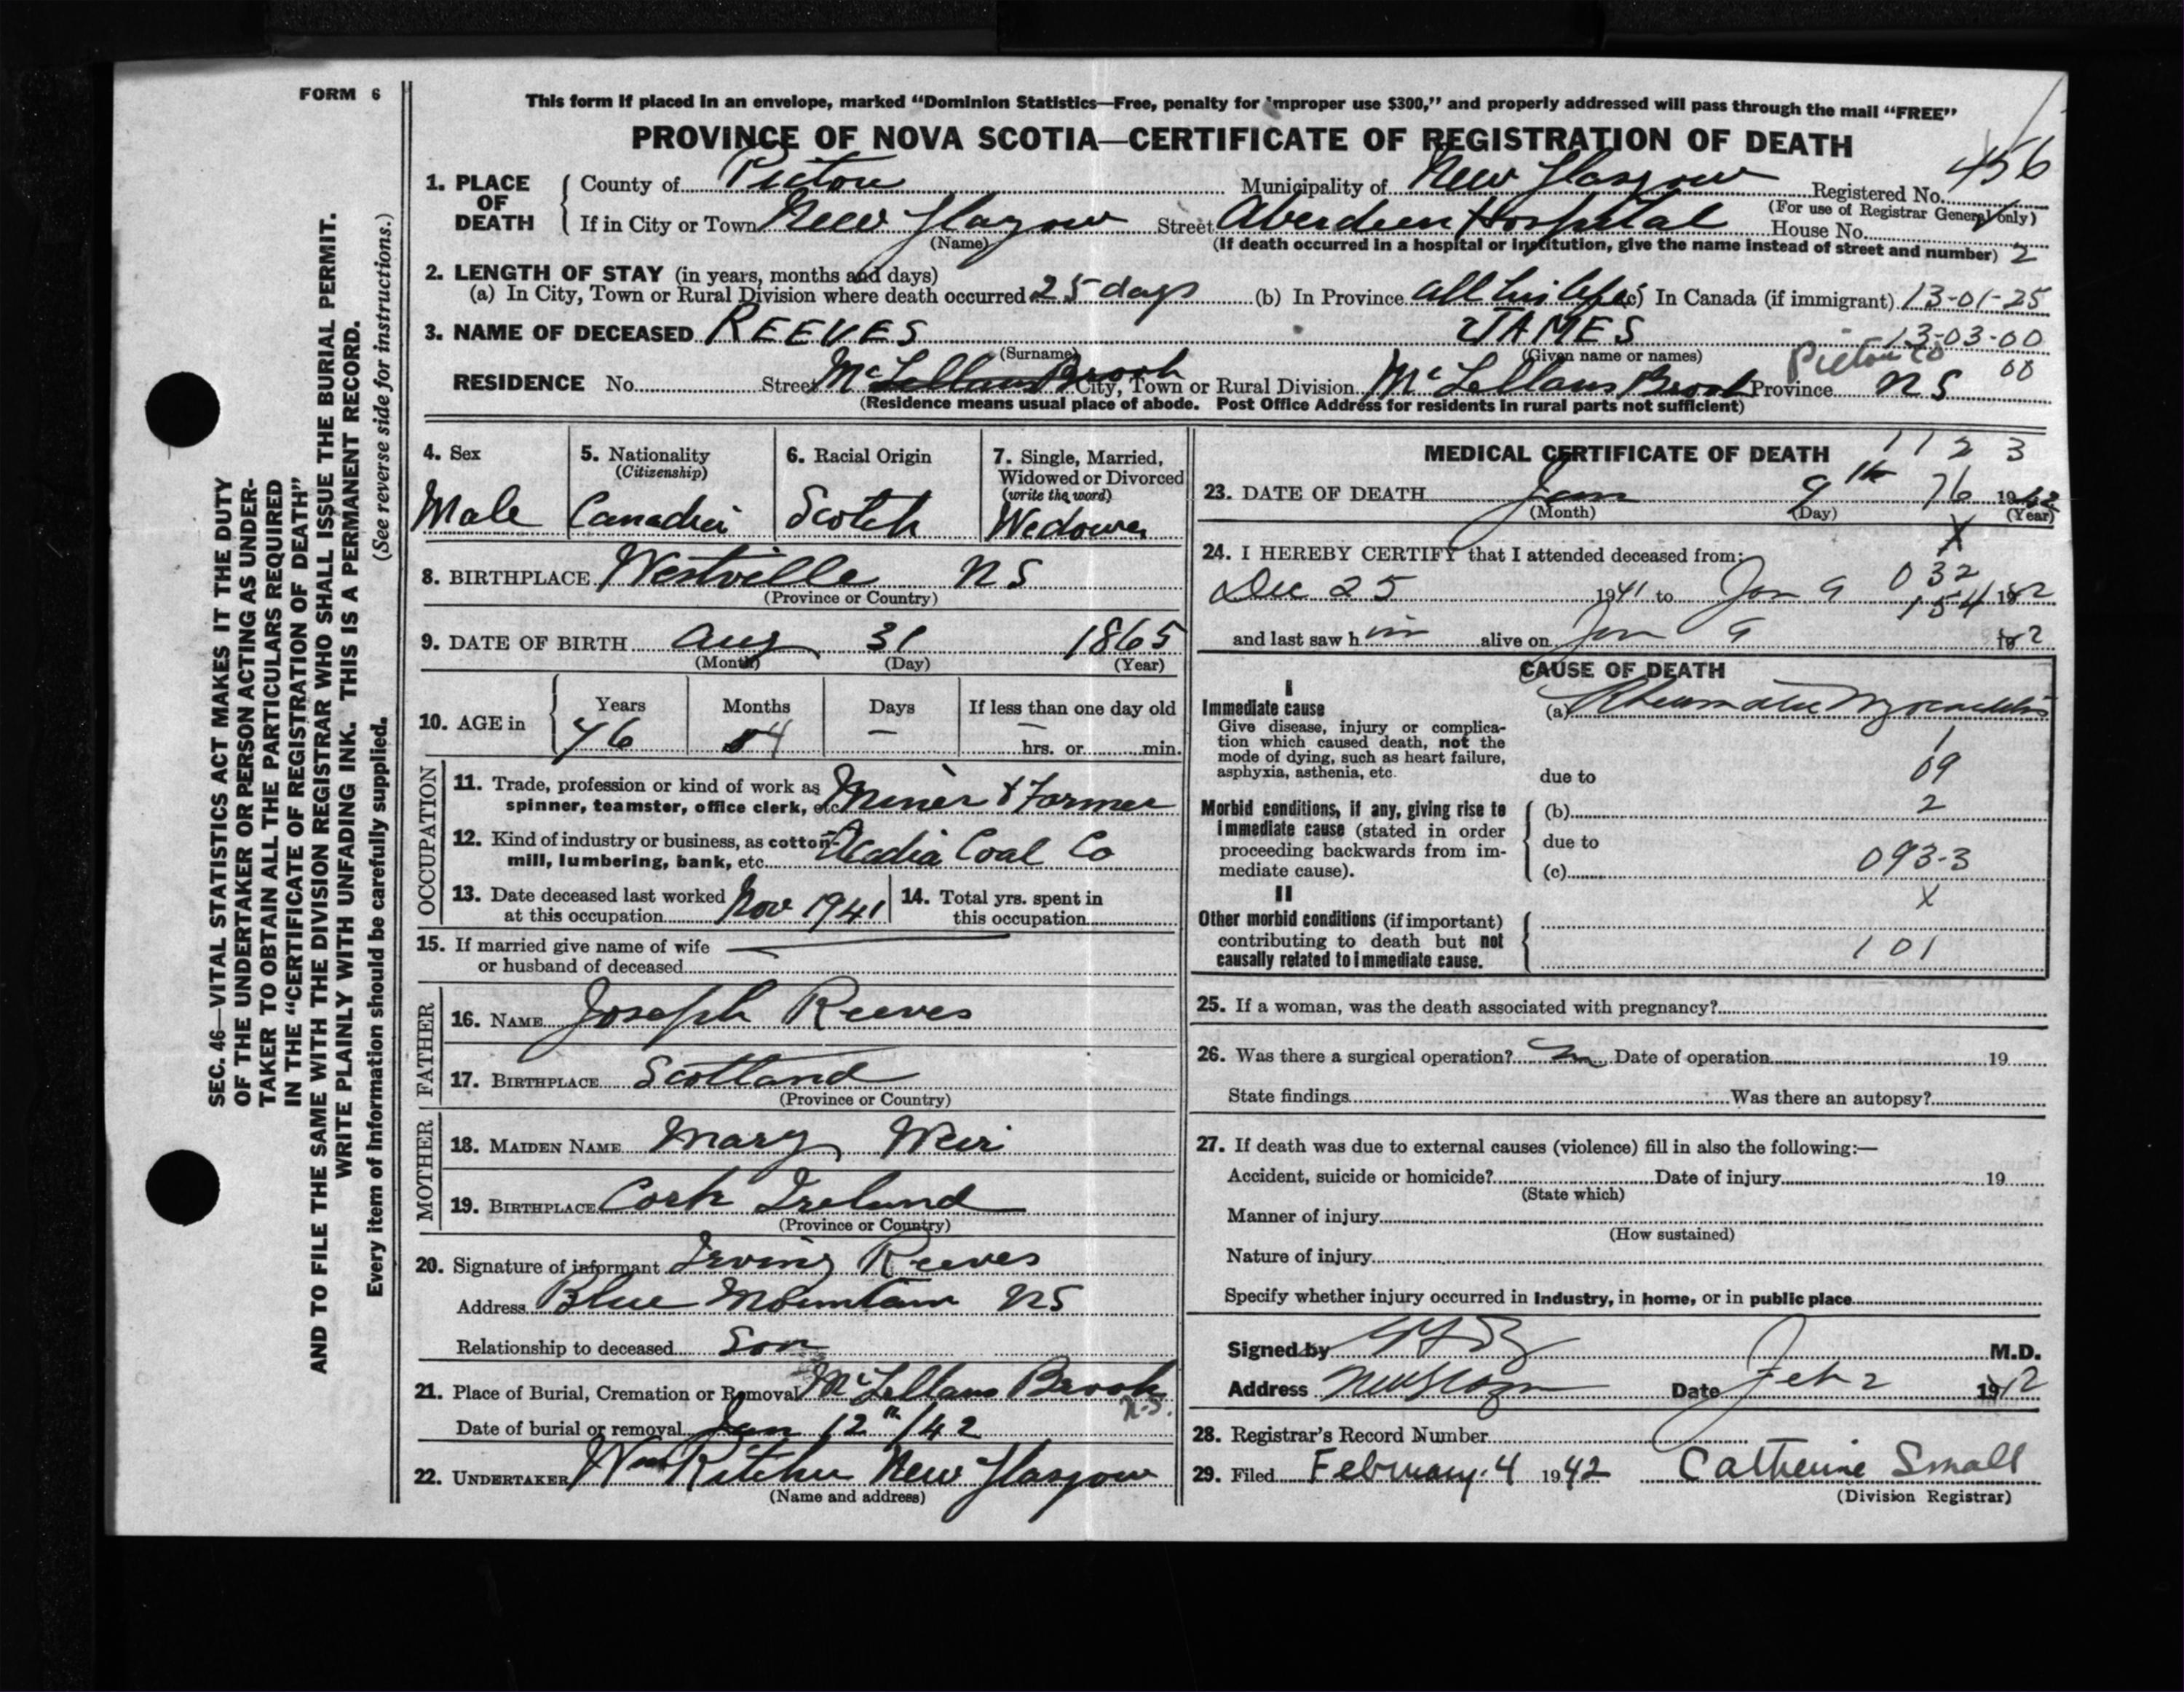 FORM 6
This form if placed in an envelope, marked “Dominion Statistics—Free, penalty for improper use $300,” and properly addressed will pass through the mail “FREE”
PROVINCE OF NOVA SCOTIA—CERTIFICATE OF REGISTRATION OF DEATH
1. PLACE OF DEATH County of Pictou Municipality of New Glasgow Registered No. 456
(For use of Registrar General only)
If in City or Town New Glasgow Street Aberdeen Hospital House No.
(Name) (If death occurred in a hospital or institution, give the name instead of street and number) 2
2. LENGTH OF STAY (in years, months and days)
(a) In City, Town or Rural Division where death occurred 25 days (b) In Province all his life (c) In Canada (if immigrant) 13-01-25
3. NAME OF DECEASED REEVES JAMES 13-03-00
(Surname) (Given name or names) Pictou Co
RESIDENCE No. Street McLellans Brook City, Town or Rural Division McLellans Brook Province NS 00
(Residence means usual place of abode. Post Office Address for residents in rural parts not sufficient)
4. Sex Male
5. Nationality (Citizenship) Canadian
6. Racial Origin Scotch
7. Single, Married, Widowed or Divorced (write the word) Widower
8. BIRTHPLACE Westville NS
(Province or Country)
9. DATE OF BIRTH Aug 31 1865
(Month) (Day) (Year)
10. AGE in Years Months Days If less than one day old
76 4 — — hrs. or min.
OCCUPATION
11. Trade, profession or kind of work as spinner, teamster, office clerk, etc. Miner & Farmer
12. Kind of industry or business, as cotton-mill, lumbering, bank, etc. Acadia Coal Co
13. Date deceased last worked at this occupation Nov 1941
14. Total yrs. spent in this occupation
15. If married give name of wife or husband of deceased —
FATHER
16. NAME Joseph Reeves
17. BIRTHPLACE Scotland
(Province or Country)
MOTHER
18. MAIDEN NAME Mary Weir
19. BIRTHPLACE Cork Ireland
(Province or Country)
20. Signature of informant Irving Reeves
Address Blue Mountain NS
Relationship to deceased Son
21. Place of Burial, Cremation or Removal McLellans Brook
N.S.
Date of burial or removal Jan 12th /42
22. UNDERTAKER Wm Ritchie New Glasgow
(Name and address)
MEDICAL CERTIFICATE OF DEATH 1 1 2 3
23. DATE OF DEATH Jan 9th 76 1942
(Month) (Day) (Year)
X
24. I HEREBY CERTIFY that I attended deceased from:
032
Dec 25 1941 to Jan 9 154 1942
and last saw him alive on Jan 9 192
CAUSE OF DEATH
I
Immediate cause (a) Rheumatic Myocarditis
Give disease, injury or complication which caused death, not the mode of dying, such as heart failure, asphyxia, asthenia, etc.
1
due to 09
2
Morbid conditions, if any, giving rise to immediate cause (stated in order proceeding backwards from immediate cause).
(b)
due to
(c) 093-3
X
II
Other morbid conditions (if important) contributing to death but not causally related to immediate cause.
101
25. If a woman, was the death associated with pregnancy?
26. Was there a surgical operation? Date of operation 19
State findings Was there an autopsy?
27. If death was due to external causes (violence) fill in also the following:—
Accident, suicide or homicide? Date of injury 19
(State which)
Manner of injury
(How sustained)
Nature of injury
Specify whether injury occurred in Industry, in home, or in public place
Signed by M.D.
Address New Glasgow Date Feb 2 1942
28. Registrar's Record Number
29. Filed February 4 1942 Catherine Small
(Division Registrar)
SEC. 46—VITAL STATISTICS ACT MAKES IT THE DUTY
OF THE UNDERTAKER OR PERSON ACTING AS UNDER-
TAKER TO OBTAIN ALL THE PARTICULARS REQUIRED
IN THE “CERTIFICATE OF REGISTRATION OF DEATH”
AND TO FILE THE SAME WITH THE DIVISION REGISTRAR WHO SHALL ISSUE THE BURIAL PERMIT.
WRITE PLAINLY WITH UNFADING INK. THIS IS A PERMANENT RECORD.
Every item of information should be carefully supplied. (See reverse side for instructions.)